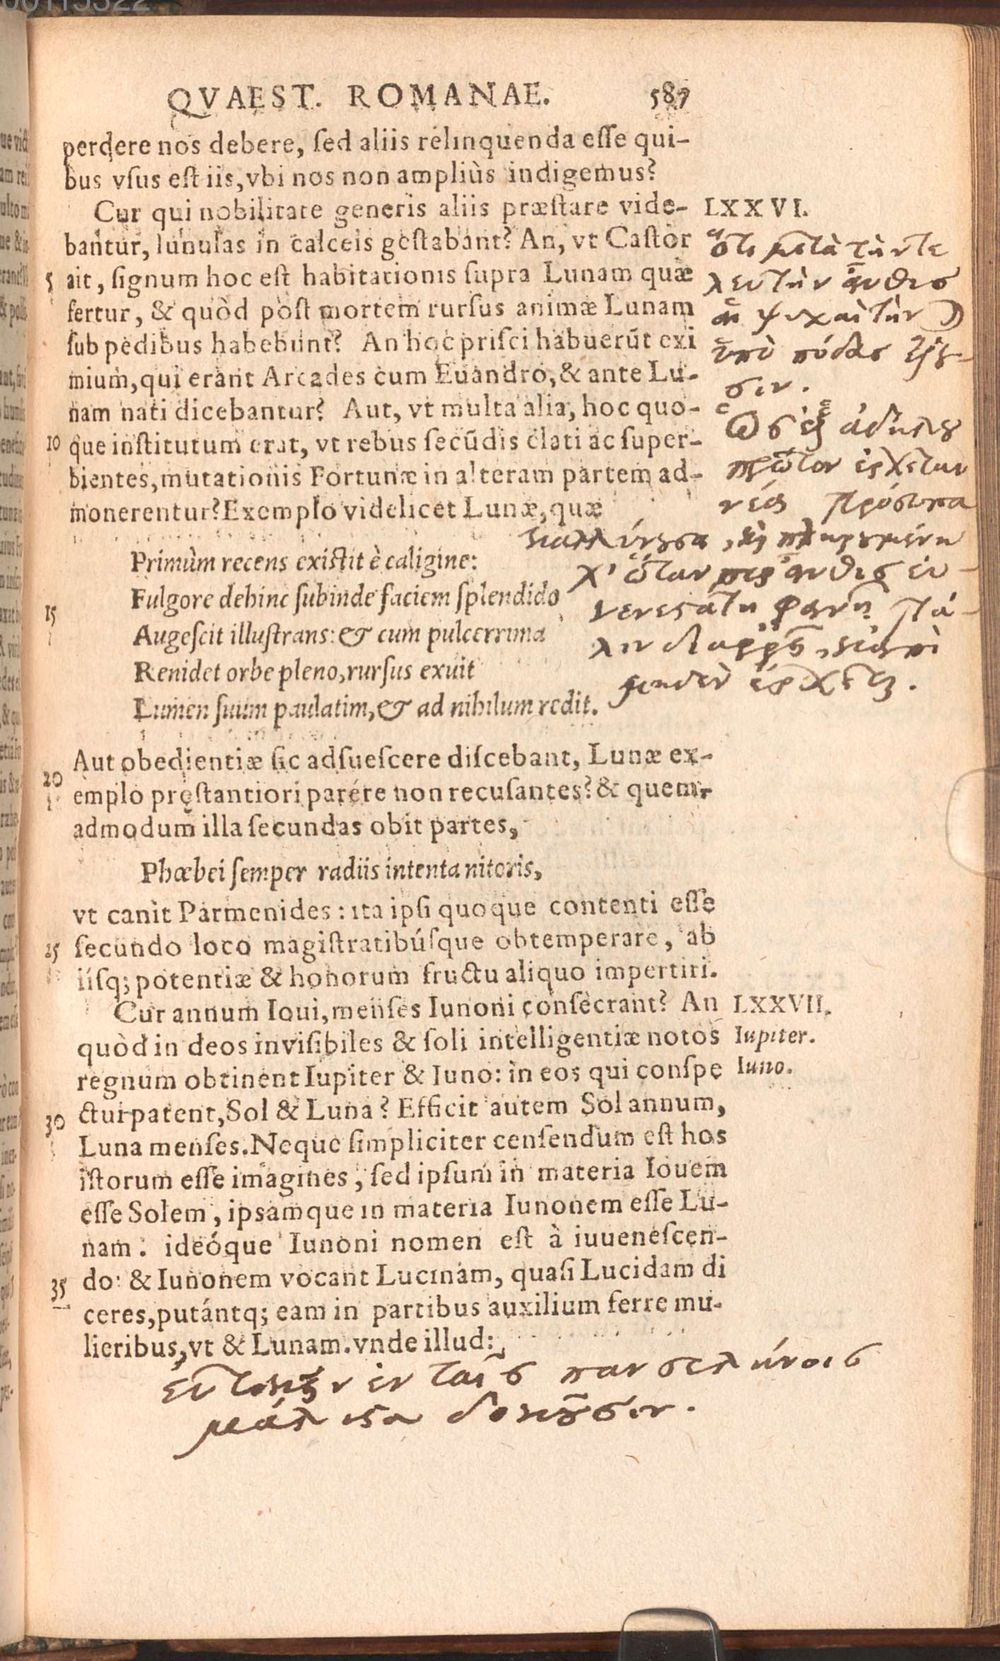 QVAEST. ROMANAE. 587
perdere nos debere, sed aliis relinquenda esse qui-
bus vsus est iis, vbi nos non ampliùs indigemus?
Cur qui nobilitate generis aliis præstare vide- LXXVI.
bantur, lunulas in calceis gestabant? An, vt Castor
5 ait, signum hoc est habitationis supra Lunam quæ
fertur, & quòd post mortem rursus animæ Lunam
sub pedibus habebunt? An hoc prisci habuerūt exi
mium, qui erant Arcades cum Euandro, & ante Lu-
nam nati dicebantur? Aut, vt multa alia, hoc quo-
10 que institutum erat, vt rebus secūdis elati ac super-
bientes, mutationis Fortunæ in alteram partem ad-
monerentur? Exemplo videlicet Lunæ, quæ
ὅτι μετὰ τὴν τε
λευτὴν αὖθις
αἱ ψυχαὶ τὴν ☽
ὑπὸ πόδας ἕξου-
σιν.
Ὡς ἐξ ἀδήλου
πρῶτον ἔρχεται
νέα πρόσωπα
καλλύνουσα, καὶ πληρουμένη
χ' ὅταν περ αὖθις εὐ-
γενεστάτη φανῇ πά-
λιν διαρρεῖ, κἀπὶ
μηδὲν ἔρχεται.
Primùm recens existit è caligine:
Fulgore debinc subinde faciem splendido
15 Augescit illustrans: & cum pulcerrima
Renidet orbe pleno, rursus exuit
Lumen suum paulatim, & ad nihilum redit.
Aut obedientiæ sic adsuescere discebant, Lunæ ex-
20 emplo pręstantiori parére non recusantes? & quem-
admodum illa secundas obit partes,
Phœbei semper radiis intenta nitoris,
vt canit Parmenides: ita ipsi quoque contenti esse
25 secundo loco magistratibúsque obtemperare, ab
iisq; potentiæ & honorum fructu aliquo impertiri.
Cur annum Ioui, menses Iunoni consecrant? An LXXVII.
quòd in deos inuisibiles & soli intelligentiæ notos Iupiter.
regnum obtinent Iupiter & Iuno: in eos qui conspe Iuno.
30 ctui patent, Sol & Luna? Efficit autem Sol annum,
Luna menses. Neque simpliciter censendum est hos
istorum esse imagines, sed ipsum in materia Iouem
esse Solem, ipsamque in materia Iunonem esse Lu-
nam. ideóque Iunoni nomen est à iuuenescen-
35 do: & Iunonem vocant Lucinam, quasi Lucidam di
ceres, putántq; eam in partibus auxilium ferre mu-
lieribus, vt & Lunam. vnde illud:
ἐν ταῖς πανσελήνοις
μάλιστα δοκοῦσιν.